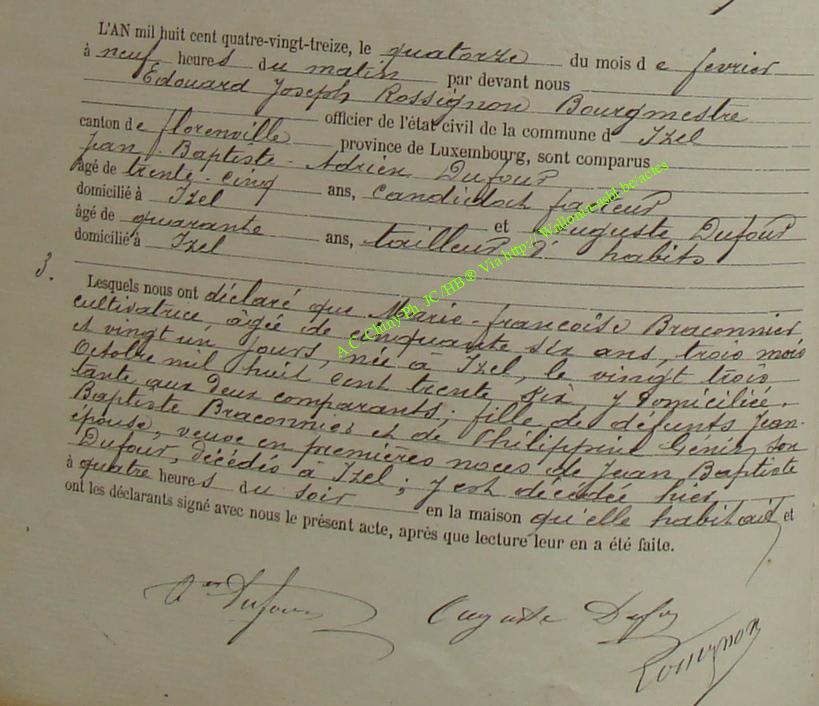 L'AN mil huit cent quatre-vingt-treize, le quatorze du mois d e fevrier
à neuf heures du matin par devant nous
Edouard Joseph Rossignon Bourgmestre
officier de l'état civil de la commune d Izel
canton de florenville province de Luxembourg, sont comparus
Jean-Baptiste-Adrien Dufour
âgé de trente-cinq ans, candidat facteur
domicilié à Izel et Auguste Dufour
âgé de quarante ans, tailleur d'habits
domicilié à Izel
3.
Lesquels nous ont déclaré que Marie-françoise Braconnier
cultivatrice âgée de cinquante six ans, trois mois
et vingt un jours, née à Izel, le vingt trois
Octobre mil huit cent trente six y domiciliée.
tante aux deux comparants; fille de défunts Jean-
Baptiste Braconnier et de Philippine Génin son
épouse, veuve en premières noces de Jean Baptiste
Dufour, décédés à Izel; y est décédée hier
à quatre heures du soir en la maison qu'elle habitait et
ont les déclarants signé avec nous le présent acte, après que lecture leur en a été faite.
Dufour Auguste Dufour
Rossignon
A.C. Chiny Ph. JC/HB® Via http://Wallonie.asbl.be/actes